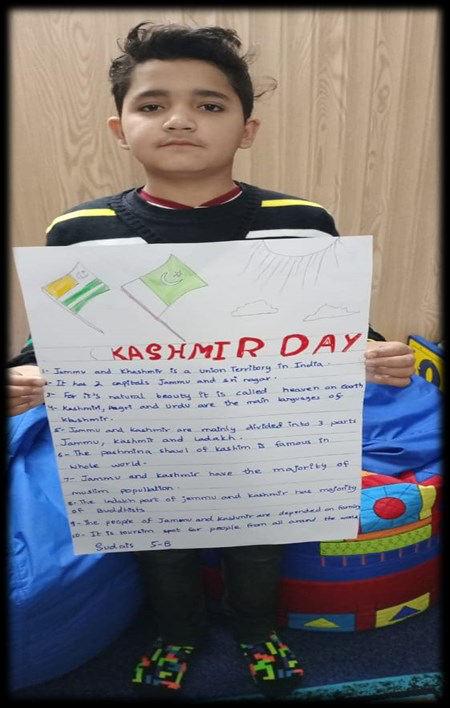 KASHMIR DAY
1- Jammu and Khashmir is a union Territory in India.
2- It has 2 capitals Jammu and Sri nagar.
3- For it's natural beauty it is called heaven on earth
4- Kashmiri, Dogri and Urdu are the main languages of
Khashmir.
5- Jammu and Kashmir are mainly divided into 3 parts
Jammu, Kashmir and Ladakh.
6- The pashmina shawl of kashim is famous in
whole world.
7- Jammu and kashmir have the majority of
muslim population.
8- The ladakh part of jammu and kashmir has majority
of Buddhists
9- The people of Jammu and Kashmir are depended on farming
10- It is tourism spot for people from all around the world
Sudais 5-B